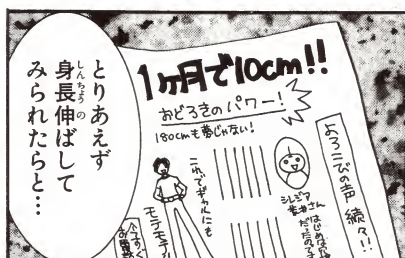 とりあえず
身長伸ばして
みられたらと…
1ヶ月で10cm!!
おどろきのパワー!
180cmも夢じゃない!
よろこびの声 続々!!
これでギャルにも
モテモテ
今すぐ